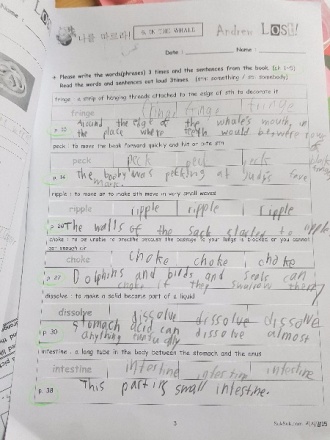 나를 따르라!
IN THE WHALE
Andrew
LOST!
Date :
Name :
+ Please write the words(phrases) 3 times and the sentences from the book.
Read the words and sentences out loud 3times. (sth: something / sb: somebody)
fringe : a strip of hanging threads attached to the edge of sth to decorate it
fringe fringe fringe fringe
Around the edge of the whale's mouth, in
the place where teeth would be, were
peck : to move the beak forward quickly and hit or bite sth
peck peck peck peck
p. 16 The was pecking at Judy's face
mask.
ripple : to move or to make sth move in very small waves
ripple ripple ripple ripple
p. 20 The walls of the sack started to ripple
choke : to be unable to breathe because the passage to your lungs is blocked or you cannot
get enough air
choke choke choke choke
p. 27 Dolphins and birds and seals can
choke if they swallow them
dissolve : to make a solid become part of a liquid
dissolve dissolve dissolve dissolve
p. 30 Stomach acid can dissolve almost
anything
intestine : a long tube in the body between the stomach and the anus
intestine intestine intestine intestine
p. 38 This part is small intestine.
3